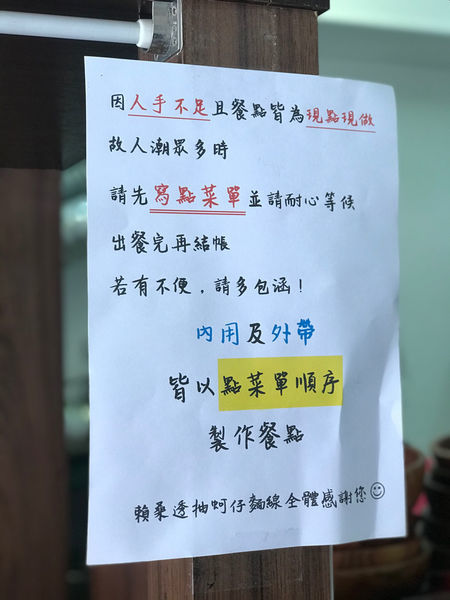 因人手不足且餐點皆為現點現做
故人潮眾多時
請先寫點菜單並請耐心等候
出餐完再結帳
若有不便，請多包涵！
內用及外帶
皆以點菜單順序
製作餐點
賴桑透抽蚵仔麵線全體感謝您☺